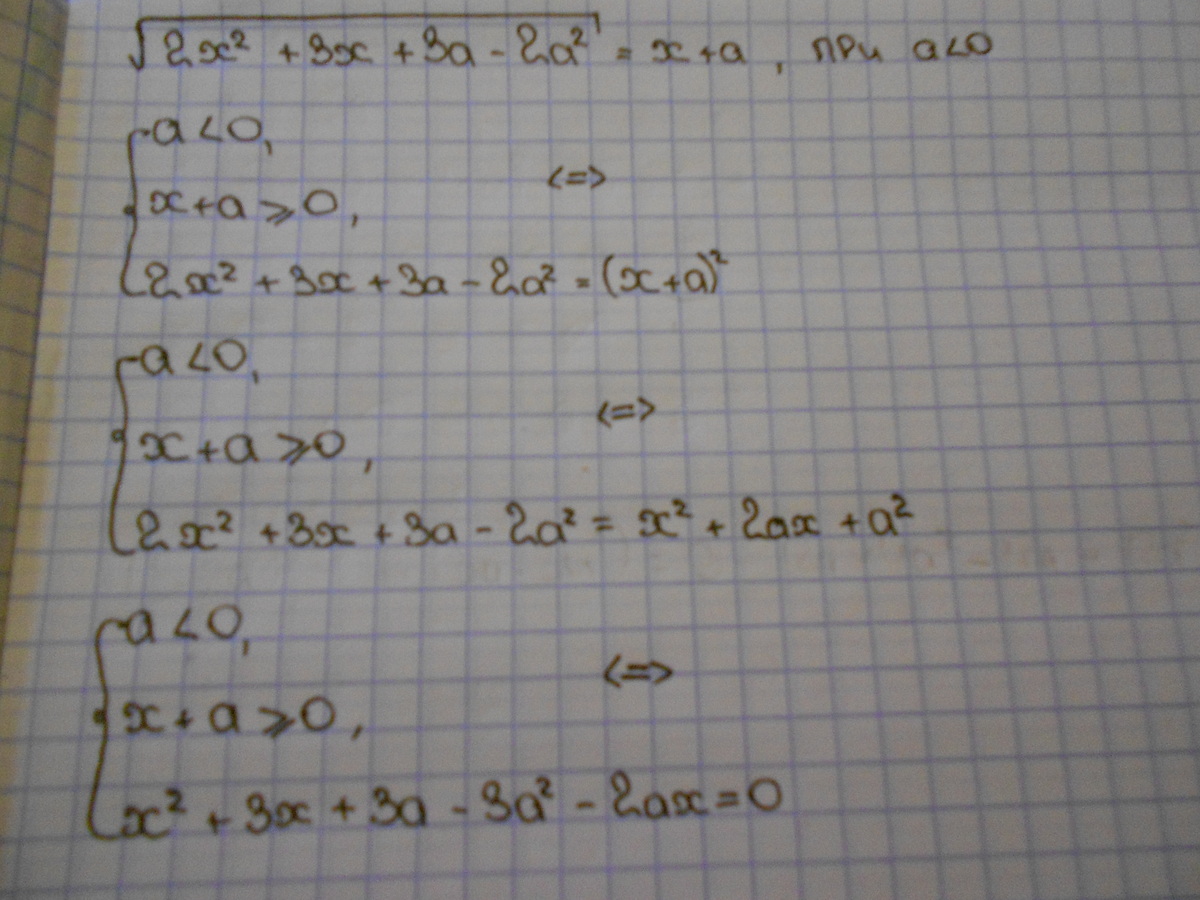 √(2x² + 3x + 3a - 2a²) = x+a, при a<0
{ a<0,
x+a ≥ 0, <=>
2x² + 3x + 3a - 2a² = (x+a)²
{ a<0,
x+a ≥ 0, <=>
2x² + 3x + 3a - 2a² = x² + 2ax + a²
{ a<0,
x+a ≥ 0, <=>
x² + 3x + 3a - 3a² - 2ax = 0